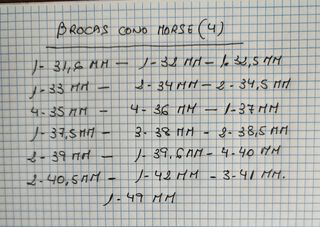 BROCAS CONO MORSE (4)
1- 31,6 MM - 1-32 MM - 1-32,5 MM
1-33 MM - 2-34 MM - 2-34,5 MM
4-35 MM - 4-36 MM - 1-37 MM
1-37,5 MM - 3-38 MM - 2-38,5 MM
2-39 MM - 1-39,6 MM - 4-40 MM
2-40,5 MM - 1-42 MM - 3-41 MM.
1-49 MM